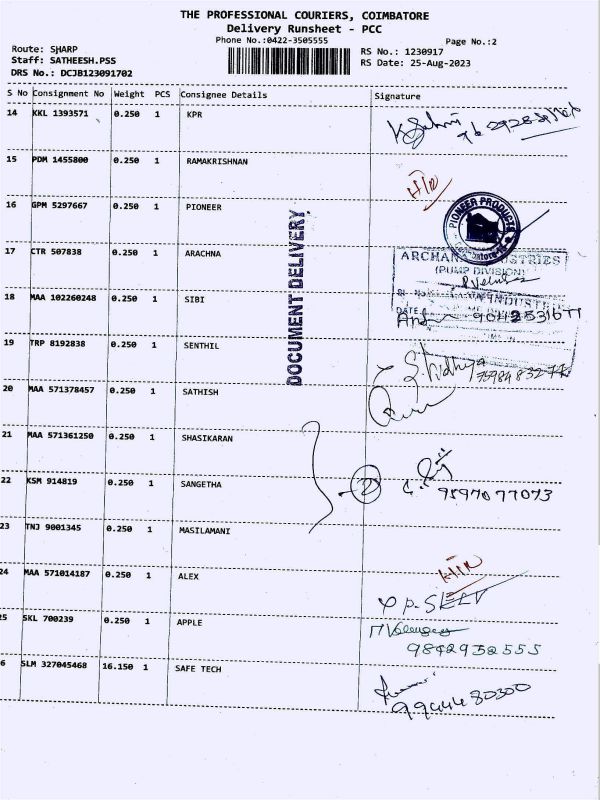 THE PROFESSIONAL COURIERS, COIMBATORE
Delivery Runsheet - PCC
Phone No.:0422-3505555
Page No.:2
Route: SHARP
RS No.: 1230917
Staff: SATHEESH.PSS
RS Date: 25-Aug-2023
DRS No.: DCJB123091702
S No Consignment No Weight PCS Consignee Details Signature
14 KKL 1393571 0.250 1 KPR
15 PDM 1455800 0.250 1 RAMAKRISHNAN
16 GPM 5297667 0.250 1 PIONEER
PIONEER PRODUCTS
17 CTR 507838 0.250 1 ARACHNA
(PUMP DIVISION)
18 MAA 102260248 0.250 1 SIBI
DATE
DOCUMENT DELIVERY
19 TRP 8192838 0.250 1 SENTHIL
S. Vidhya
20 MAA 571378457 0.250 1 SATHISH
21 MAA 571361250 0.250 1 SHASIKARAN
22 KSM 914819 0.250 1 SANGETHA
2
23 TNJ 9001345 0.250 1 MASILAMANI
24 MAA 571014187 0.250 1 ALEX
25 SKL 700239 0.250 1 APPLE
9842932555
26 SLM 327045468 16.150 1 SAFE TECH
9944480300